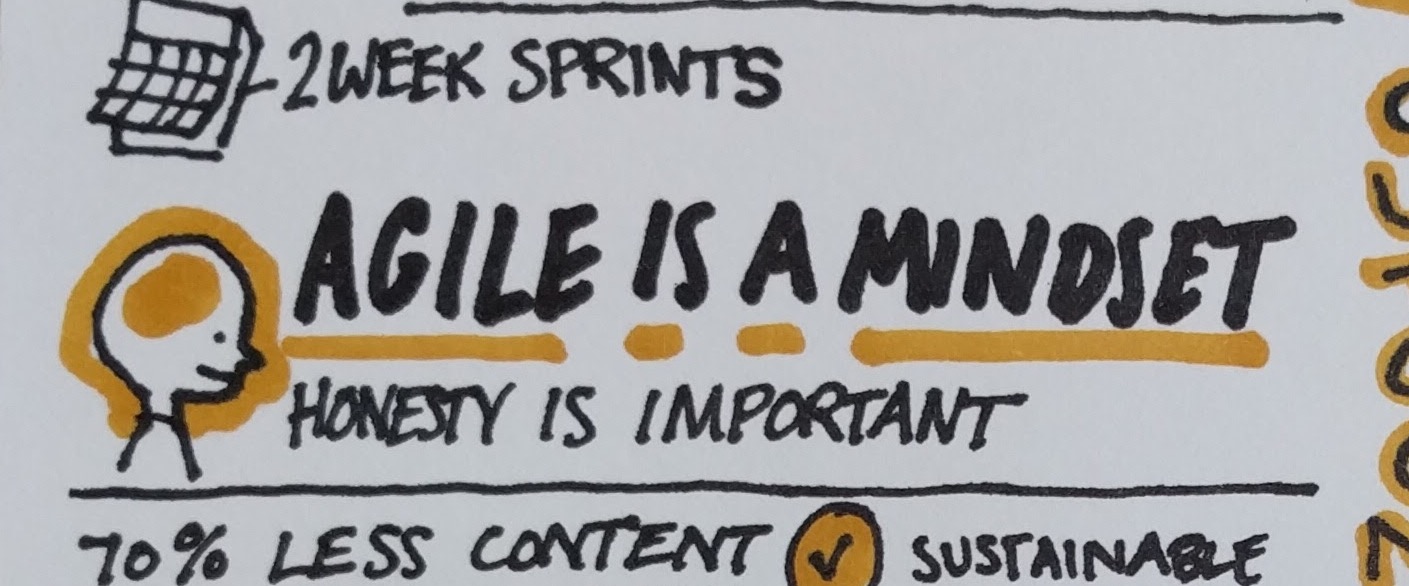 2 WEEK SPRINTS
AGILE IS A MINDSET
HONESTY IS IMPORTANT
70% LESS CONTENT ✓ SUSTAINABLE